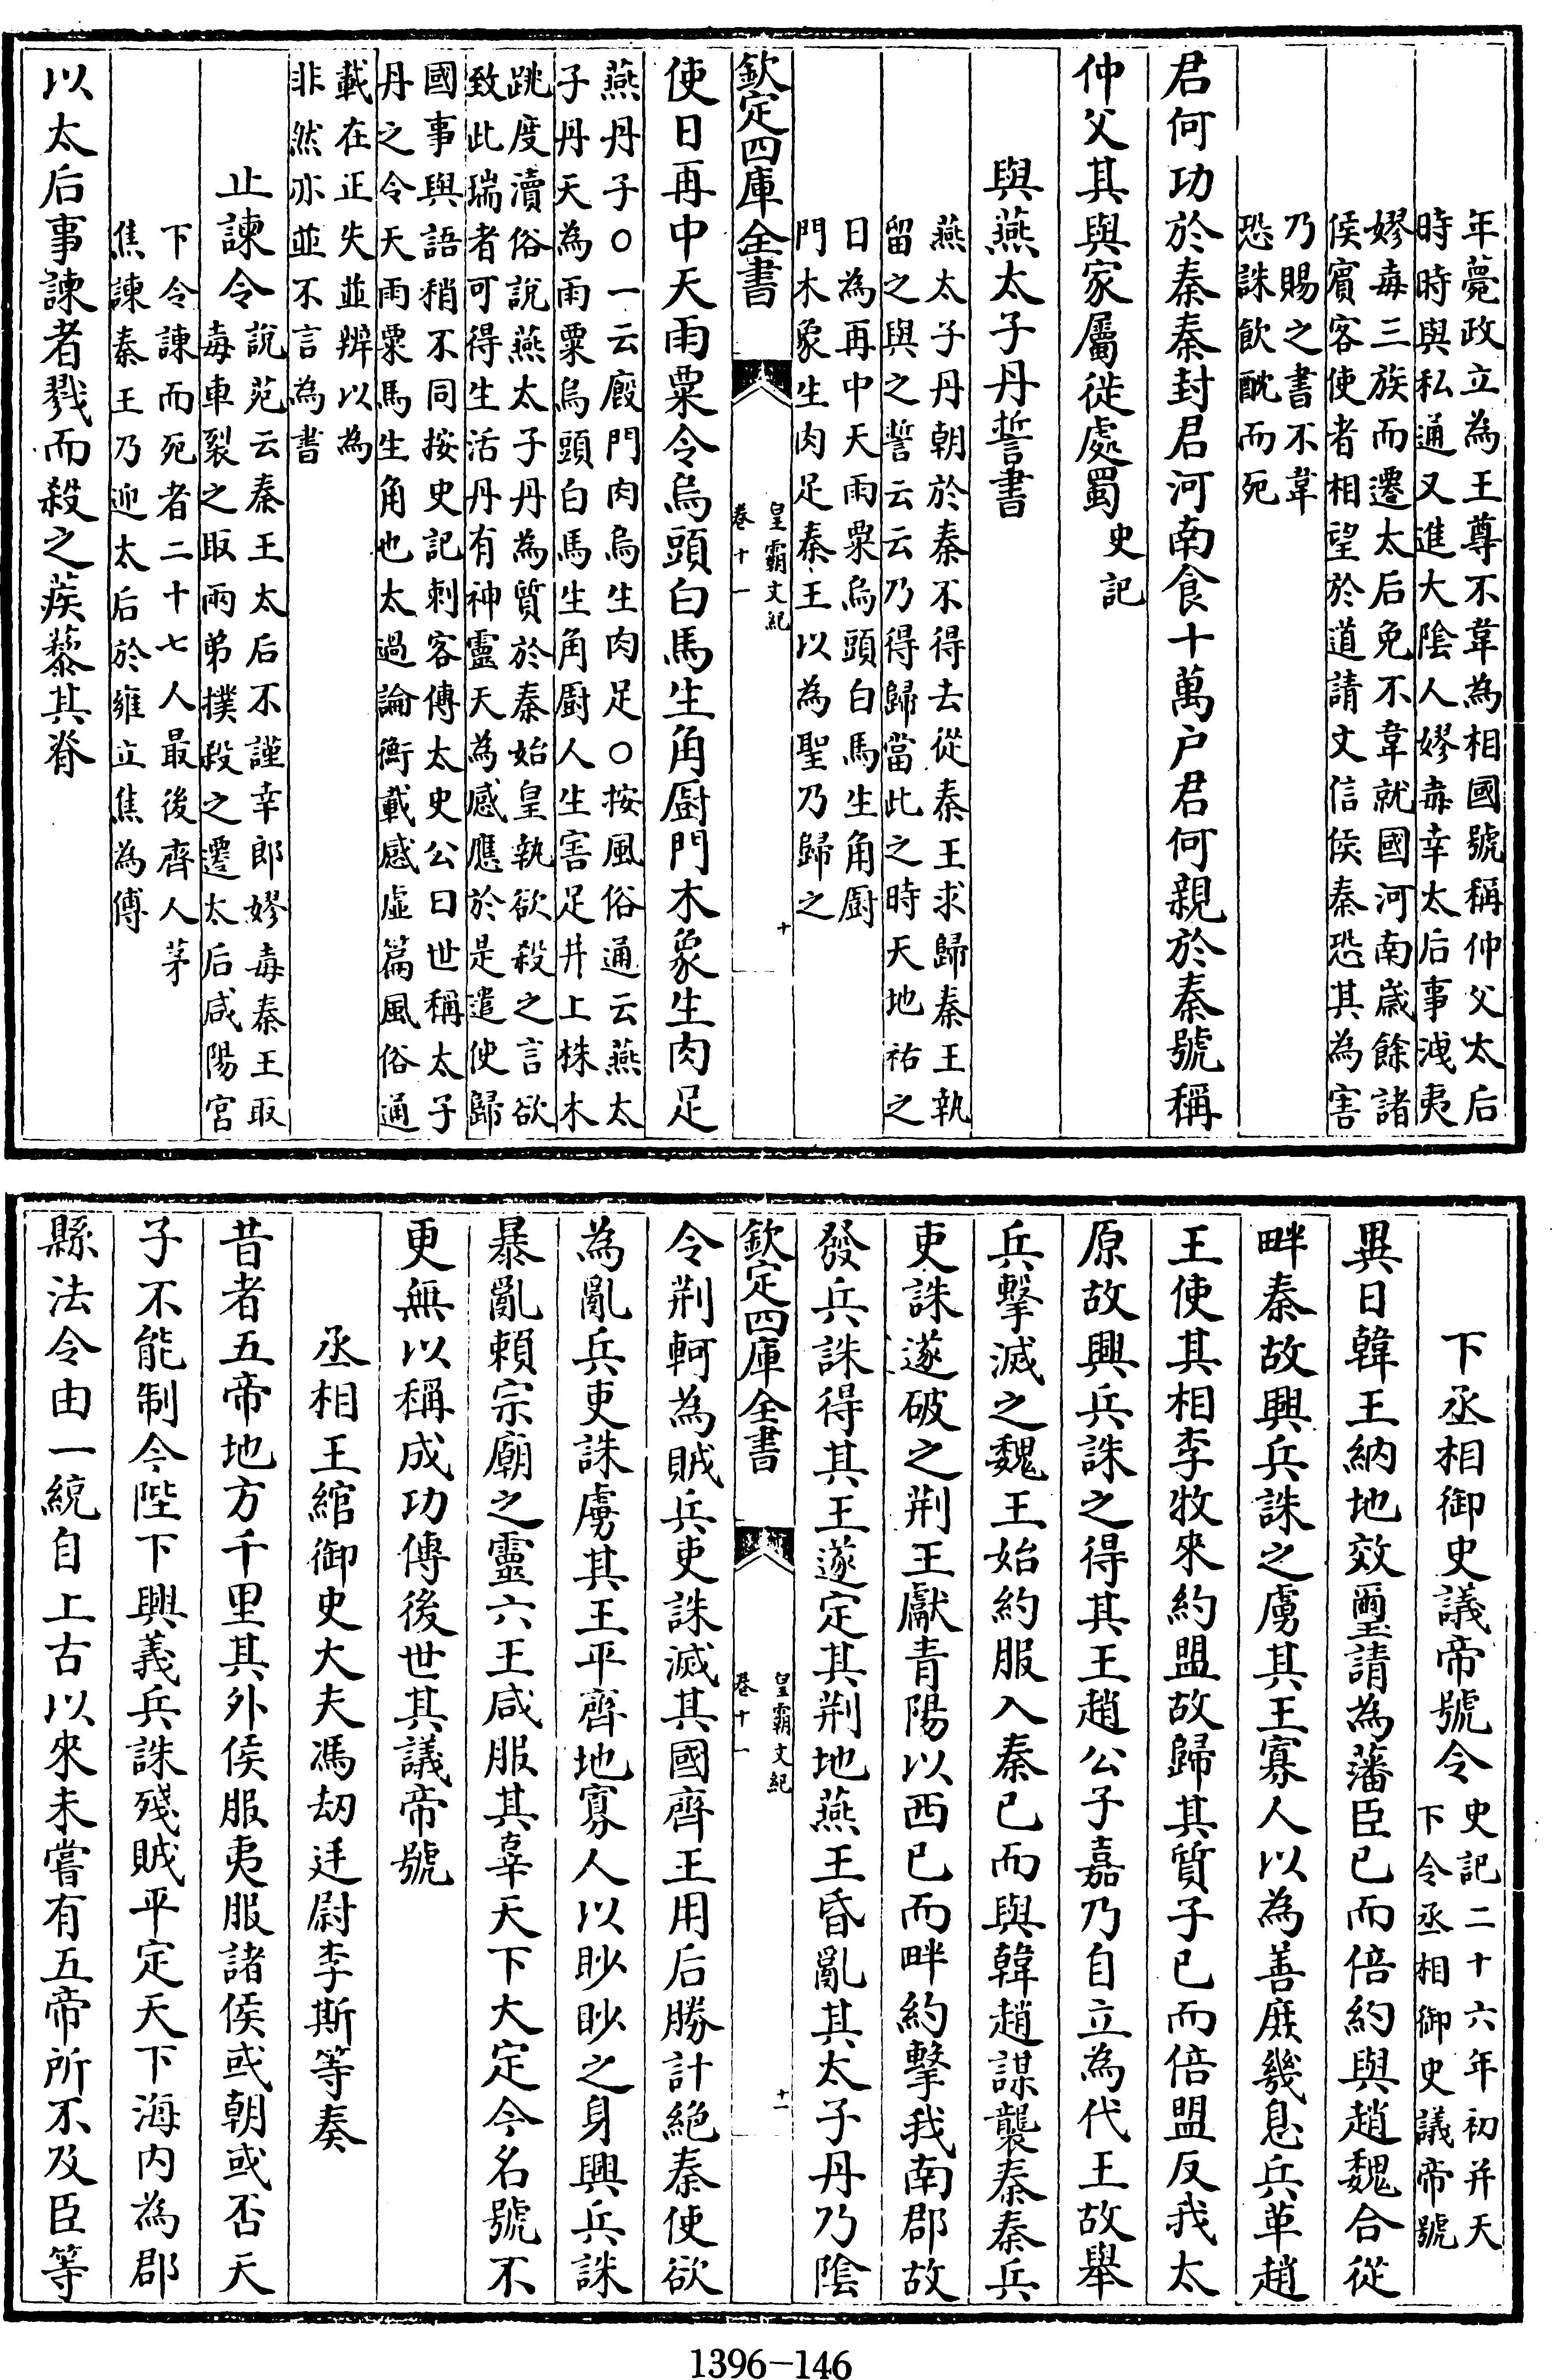 年薨政立為王尊不韋為相國號稱仲父太后
時時與私通又進大陰人嫪毐幸太后事洩夷
嫪毐三族而遷太后免不韋就國河南歲餘諸
侯賓客使者相望於道請文信侯秦恐其為害
乃賜之書不韋
恐誅飲酖而死
君何功於秦秦封君河南食十萬户君何親於秦號稱
仲父其與家屬徙處蜀史記
與燕太子丹誓書
燕太子丹朝於秦不得去從秦王求歸秦王執
留之與之誓云云乃得歸當此之時天地祐之
日為再中天雨粟烏頭白馬生角厨
門木象生肉足秦王以為聖乃歸之
欽定四庫全書
皇霸文紀
卷十一
十
使日再中天雨粟令烏頭白馬生角厨門木象生肉足
燕丹子○一云廏門肉烏生肉足○按風俗通云燕太
子丹天為雨粟烏頭白馬生角厨人生害足井上株木
跳度瀆俗説燕太子丹為質於秦始皇執欲殺之言欲
致此瑞者可得生活丹有神靈天為感應於是遣使歸
國事與語稍不同按史記刺客傳太史公曰世稱太子
丹之令天雨粟馬生角也太過論衡載感虛篇風俗通
載在正失並辨以為
非然亦並不言為書
止諫令說苑云秦王太后不謹幸郎嫪毐秦王取
毐車裂之取兩弟撲殺之遷太后咸陽宮
下令諫而死者二十七人最後齊人茅
焦諫秦王乃迎太后於雍立焦為傅
以太后事諫者戮而殺之蒺藜其脊
下丞相御史議帝號令史記二十六年初并天
下令丞相御史議帝號
異日韓王納地效璽請為藩臣已而倍約與趙魏合從
畔秦故興兵誅之虜其王寡人以為善庶幾息兵革趙
王使其相李牧來約盟故歸其質子已而倍盟反我太
原故興兵誅之得其王趙公子嘉乃自立為代王故舉
兵擊滅之魏王始約服入秦已而與韓趙謀襲秦秦兵
吏誅遂破之荆王獻青陽以西已而畔約擊我南郡故
發兵誅得其王遂定其荆地燕王昏亂其太子丹乃陰
欽定四庫全書
皇霸文紀
卷十一
十一
令荆軻為賊兵吏誅滅其國齊王用后勝計絶秦使欲
為亂兵吏誅虜其王平齊地寡人以眇眇之身興兵誅
暴亂賴宗廟之靈六王咸服其辜天下大定今名號不
更無以稱成功傳後世其議帝號
丞相王綰御史大夫馮劫廷尉李斯等奏
昔者五帝地方千里其外侯服夷服諸侯或朝或否天
子不能制今陛下興義兵誅殘賊平定天下海内為郡
縣法令由一統自上古以來未嘗有五帝所不及臣等
1396-146